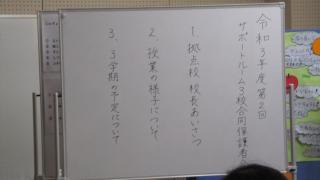 令和3年度第2回
サポートルーム3校合同保護者会
1. 拠点校 校長あいさつ
2. 授業の様子について
3. 3学期の予定について